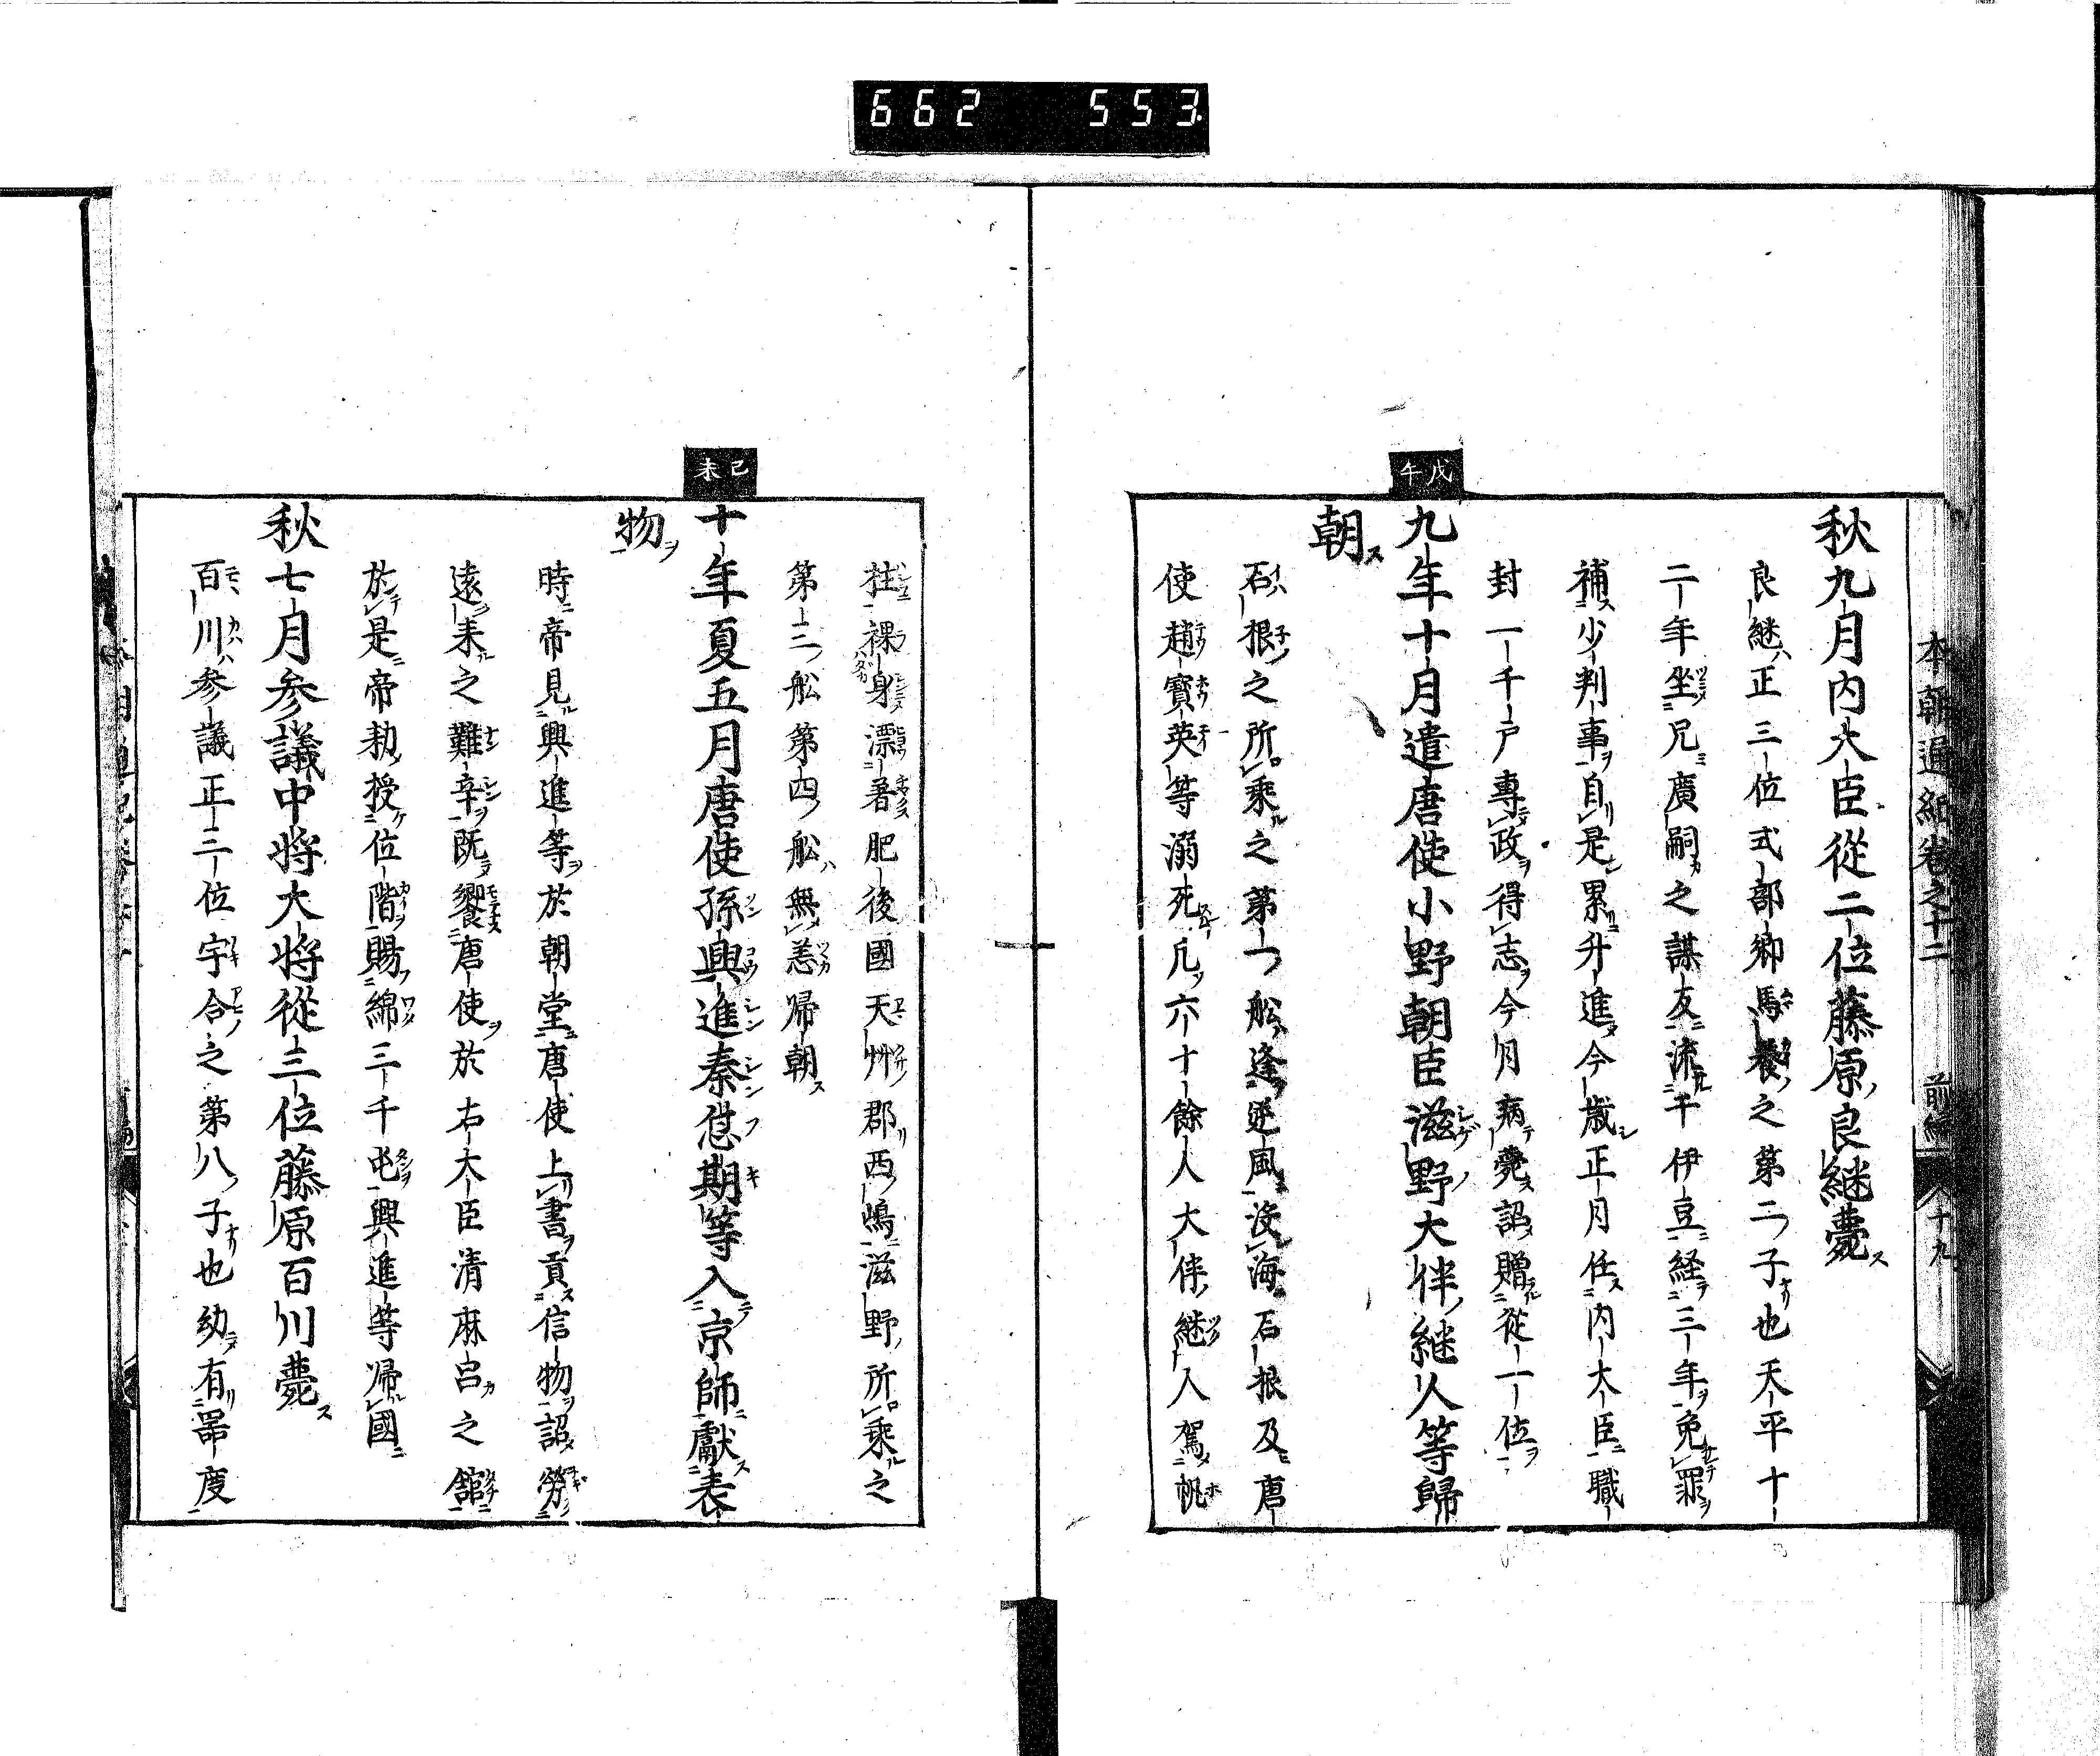 662 553
本朝通紀卷之十二 前編 十九
秋九月内大臣從二位藤原良継薨
良継正三位式部卿馬養之第二子也天平十
二年坐兄廣嗣之謀友流于伊豆経三年免罪
補少判事自是累升進今歳正月任内大臣職
封一千戸專政得志今月病薨詔贈從一位
戊午
九年十月遣唐使小野朝臣滋野大伴継人等歸
朝
石根之所乘之第一舩逢逆風没海石根及唐
使趙寳英等溺死凡六十餘人大伴継人駕帆
柱裸身漂着肥後國天草郡西嶋滋野所乘之
第三舩第四舩無恙帰朝
己未
十年夏五月唐使孫興進秦愆期等入京師獻表
物
時帝見興進等於朝堂唐使上書貢信物詔勞
遠来之難辛既饗唐使於右大臣清麻呂之舘
於是帝勅授位階賜綿三千屯興進等帰國
秋七月参議中將大將從三位藤原百川薨
百川参議正三位宇合之第八子也幼有噐度